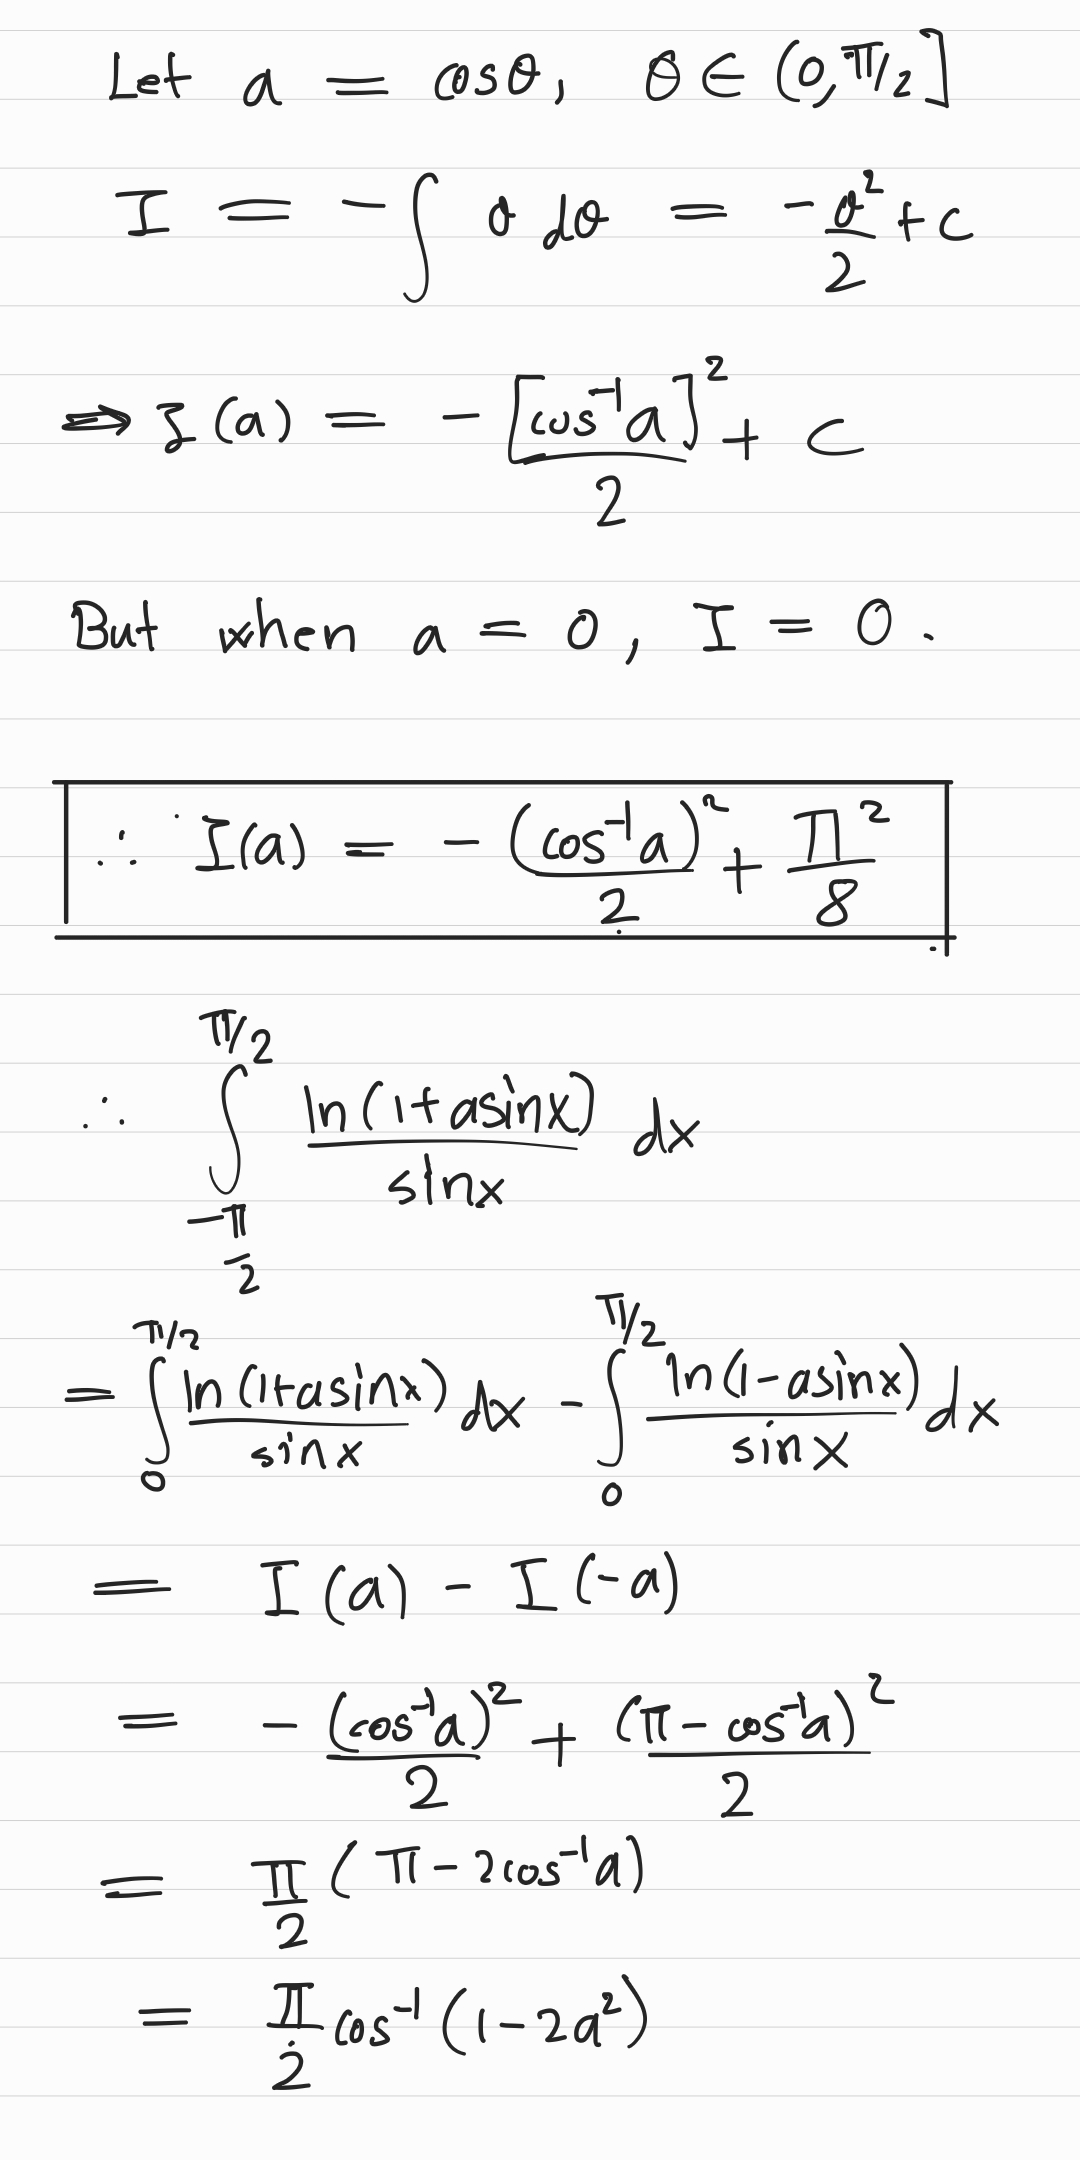 Let a = cosθ, θ ∈ (0, π/2]
I = -∫ θ dθ = -θ²/2 + c
⇒ I(a) = -[cos⁻¹a]²/2 + C
But when a = 0, I = 0.
∴ I(a) = -(cos⁻¹a)²/2 + π²/8
∴ ∫_{-π/2}^{π/2} ln(1+asinx)/sinx dx
= ∫_0^{π/2} ln(1+asinx)/sinx dx - ∫_0^{π/2} ln(1-asinx)/sinx dx
= I(a) - I(-a)
= -(cos⁻¹a)²/2 + (π - cos⁻¹a)²/2
= π/2 (π - 2cos⁻¹a)
= π/2 cos⁻¹(1-2a²)